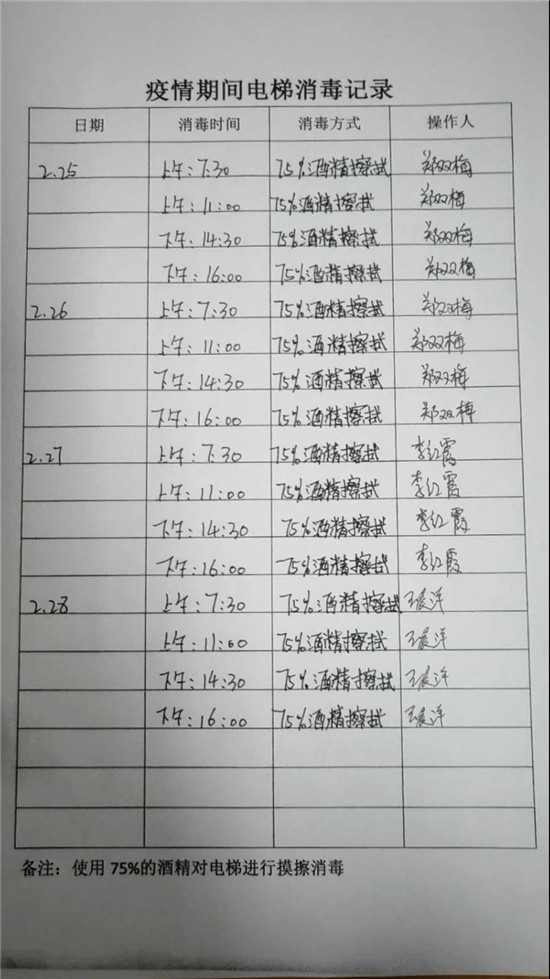 疫情期间电梯消毒记录
日期 消毒时间 消毒方式 操作人
2.25 上午:7:30 75%酒精擦拭 郑双梅
上午:11:00 75%酒精擦拭 郑双梅
下午:14:30 75%酒精擦拭 郑双梅
下午:16:00 75%酒精擦拭 郑双梅
2.26 上午:7:30 75%酒精擦拭 郑双梅
上午:11:00 75%酒精擦拭 郑双梅
下午:14:30 75%酒精擦拭 郑双梅
下午:16:00 75%酒精擦拭 郑双梅
2.27 上午:7:30 75%酒精擦拭 李红霞
上午:11:00 75%酒精擦拭 李红霞
下午:14:30 75%酒精擦拭 李红霞
下午:16:00 75%酒精擦拭 李红霞
2.28 上午:7:30 75%酒精擦拭
上午:11:00 75%酒精擦拭
下午:14:30 75%酒精擦拭
下午:16:00 75%酒精擦拭
备注：使用 75%的酒精对电梯进行摸擦消毒